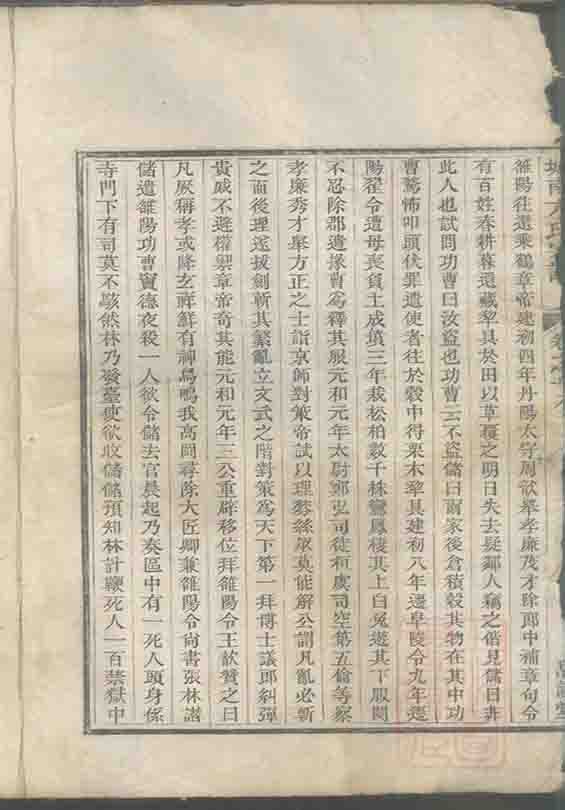 雒陽往還乘鶴章帝建初四年丹陽太守周歆舉孝廉茂才除郎中補章句令
有百姓春耕暮還藏犂具於田以草覆之明日失去疑鄰人竊之偕見儲日非
此人也試問功曹曰汝盜也功曹云不盜儲曰爾家後倉積穀其物在其中功
曹驚怖叩頭伏罪遣使者往於穀中得栗木犂具建初八年遷阜陵令九年遷
陽翟令遭母喪負土成墳三年栽松柏數千株鸞鳳棲其上白兔遊其下服闋
不忍除郡遣掾曹為釋其服元和元年太尉鄭弘司徒桓虞司空第五倫等察
孝廉秀才舉方正之士詣京師對策帝試以理棼絲眾莫能解公謂凡亂必斬
之而後理遂拔劍斬其繁亂立文式之階對策為天下第一拜博士議郎糾彈
貴戚不避權禦章帝奇其能元和元年三公重辟移位拜雒陽令王歆贊之曰
凡厥稱孝或降玄 鮮有神鳥鳴我高岡尋除大匠卿兼雒陽令尚書張林譖
儲遣雒陽功曹竇德夜殺一人欲令儲去官晨起乃奏區中有一死人頭身係
寺門下有司莫不駭然林乃發臺使欲收儲儲預知林計鞭死人一百禁獄中